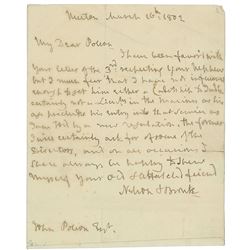 Merton March 16th 1802
My Dear Polson
I have been favor'd with
your letter of the 3rd respecting your Nephew
but I must fear that I have not influence
enough to get him either a
certainly not a Lieut: in the Marines as his
age precludes his entry into that service as
I am told by a new regulation, the former
I will certainly ask for of some of the
Directors, and on any occasion I
shall always be happy to shew
myself your Old & Attached friend
Nelson & Bronte
John Polson Esqr.